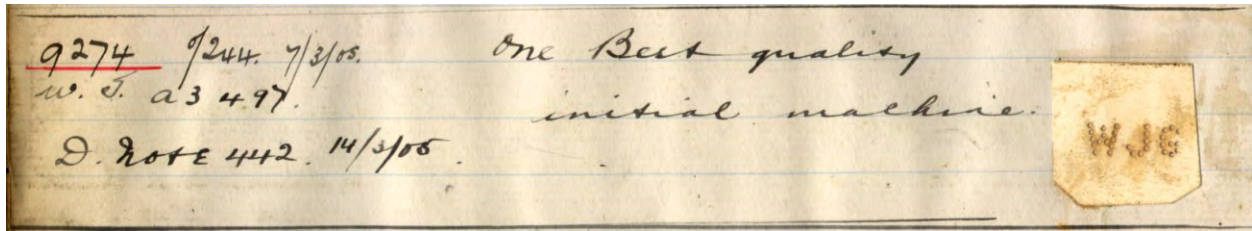 9274 O/244. 7/3/05. One Best quality
W. T. a3 497. initial machine.
D. Note 442. 14/3/05.
WJG